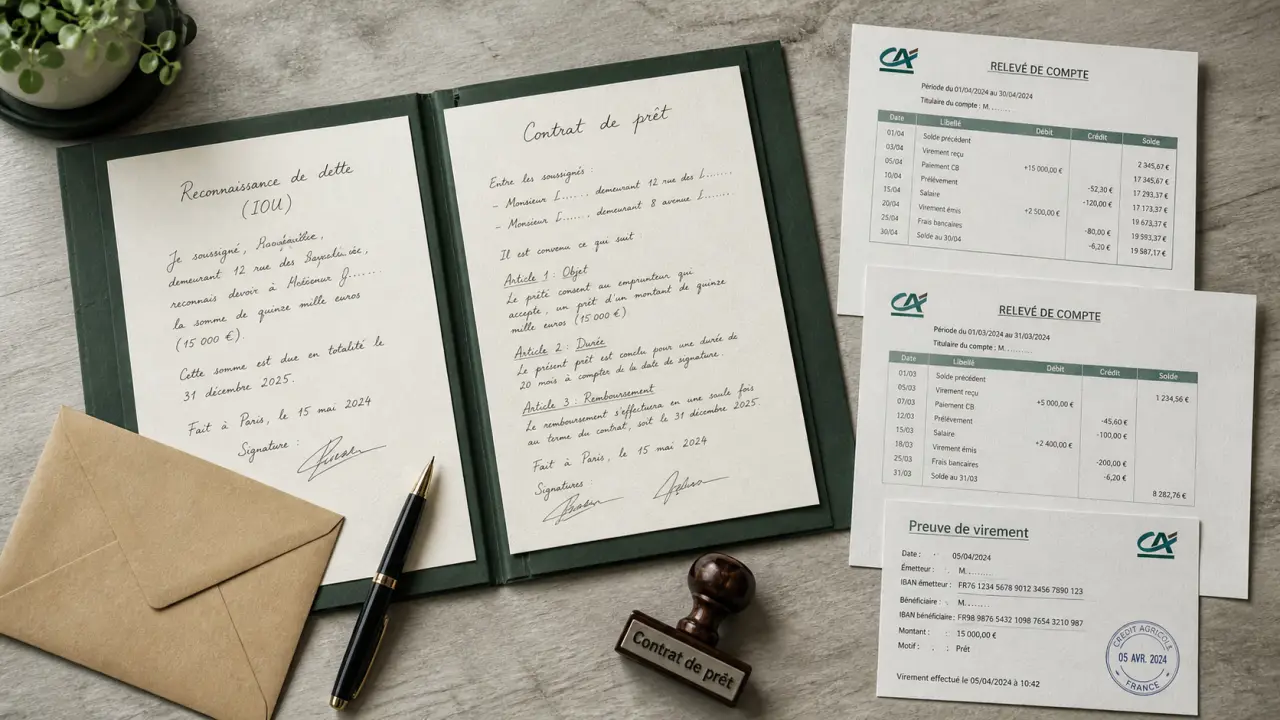 Reconnaissance de dette
(IOU)
Je soussigné,
demeurant 12 rue des
reconnais devoir à
la somme de quinze mille euros
(15 000 €).
Cette somme est due en totalité le
31 décembre 2025.
Fait à Paris, le 15 mai 2024
Signature :
Contrat de prêt
Entre les soussignés :
- Monsieur L...... demeurant 12 rue des L......
- Monsieur L...... demeurant 8 avenue L......
Il est convenu ce qui suit
Article 1 : Objet
Le prêté consent au emprunteur qui
accepte, un prêt d'un montant de quinze
mille euros (15 000 €).
Article 2 : Durée
Le présent prêt est conclu pour une durée de
20 mois à compter de la date de signature.
Article 3 : Remboursement
Le remboursement s'effectuera en une seule fois
au terme du contrat, soit le 31 décembre 2025.
Fait à Paris, le 15 mai 2024
Signatures :
Contrat de prêt
CA
RELEVÉ DE COMPTE
Période du 01/04/2024 au 30/04/2024
Titulaire du compte : M. ......
Date Libellé Débit Crédit Solde
01/04 Solde précédent 2 345,67 €
03/04 Virement reçu +15 000,00 € 17 345,67 €
05/04 Paiement CB -52,30 € 17 293,37 €
10/04 Prélèvement -120,00 € 17 173,37 €
15/04 Salaire +2 500,00 € 19 673,37 €
20/04 Virement émis -80,00 € 19 593,37 €
25/04 Frais bancaires -6,20 € 19 587,17 €
30/04 Solde au 30/04
CA
RELEVÉ DE COMPTE
Période du 01/03/2024 au 31/03/2024
Titulaire du compte : M. ........
Date Libellé Débit Crédit Solde
01/03 Solde précédent 1 234,56 €
05/03 Virement reçu +5 000,00 €
07/03 Paiement CB -45,60 €
12/03 Prélèvement -100,00 €
15/03 Salaire +2 400,00 €
18/03 Virement émis -200,00 €
25/03 Frais bancaires -6,20 €
31/03 Solde au 31/03 8 282,76 €
Preuve de virement
CA
Date : 05/04/2024
Émetteur : M..........
IBAN émetteur : FR76 1234 5678 9012 3456 7890 123
Bénéficiaire : M..........
IBAN bénéficiaire : FR98 9876 5432 1098 7654 3210 987
Montant : 15 000,00 €
Motif : Prêt
Virement effectué le 05/04/2024 à 10:42
CRÉDIT AGRICOLE
05 AVR. 2024
FRANCE